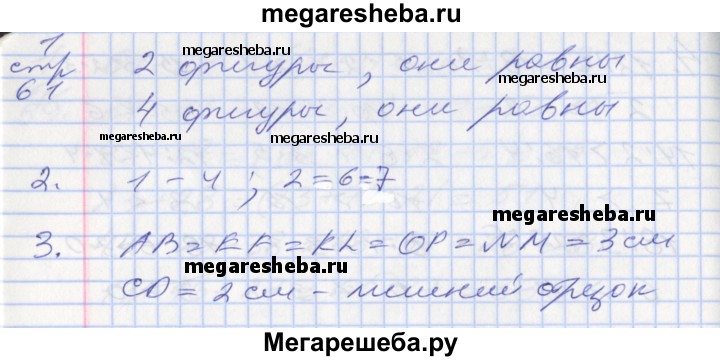 megaresheba.ru
1
стр 2 фигуры, они равны
megaresheba.ru
61
4 фигуры, они равны
megaresheba.ru
megaresheba.ru
2. 1 - 4 ; 2 = 6 = 7
megaresheba.ru
3. AB = EF = KL = OP = NM = 3 см
megaresheba.ru
CD = 2 см - лишний отрезок
Мегарешеба.ру